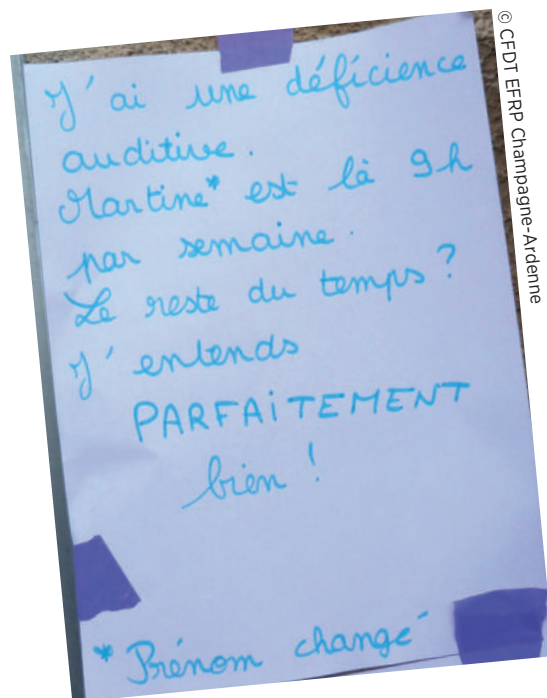 J'ai une déficience
auditive.
Martine* est là 9h
par semaine.
Le reste du temps ?
J'entends
PARFAiTEMENT
bien !
*Prénom changé
© CFDT EFRP Champagne-Ardenne